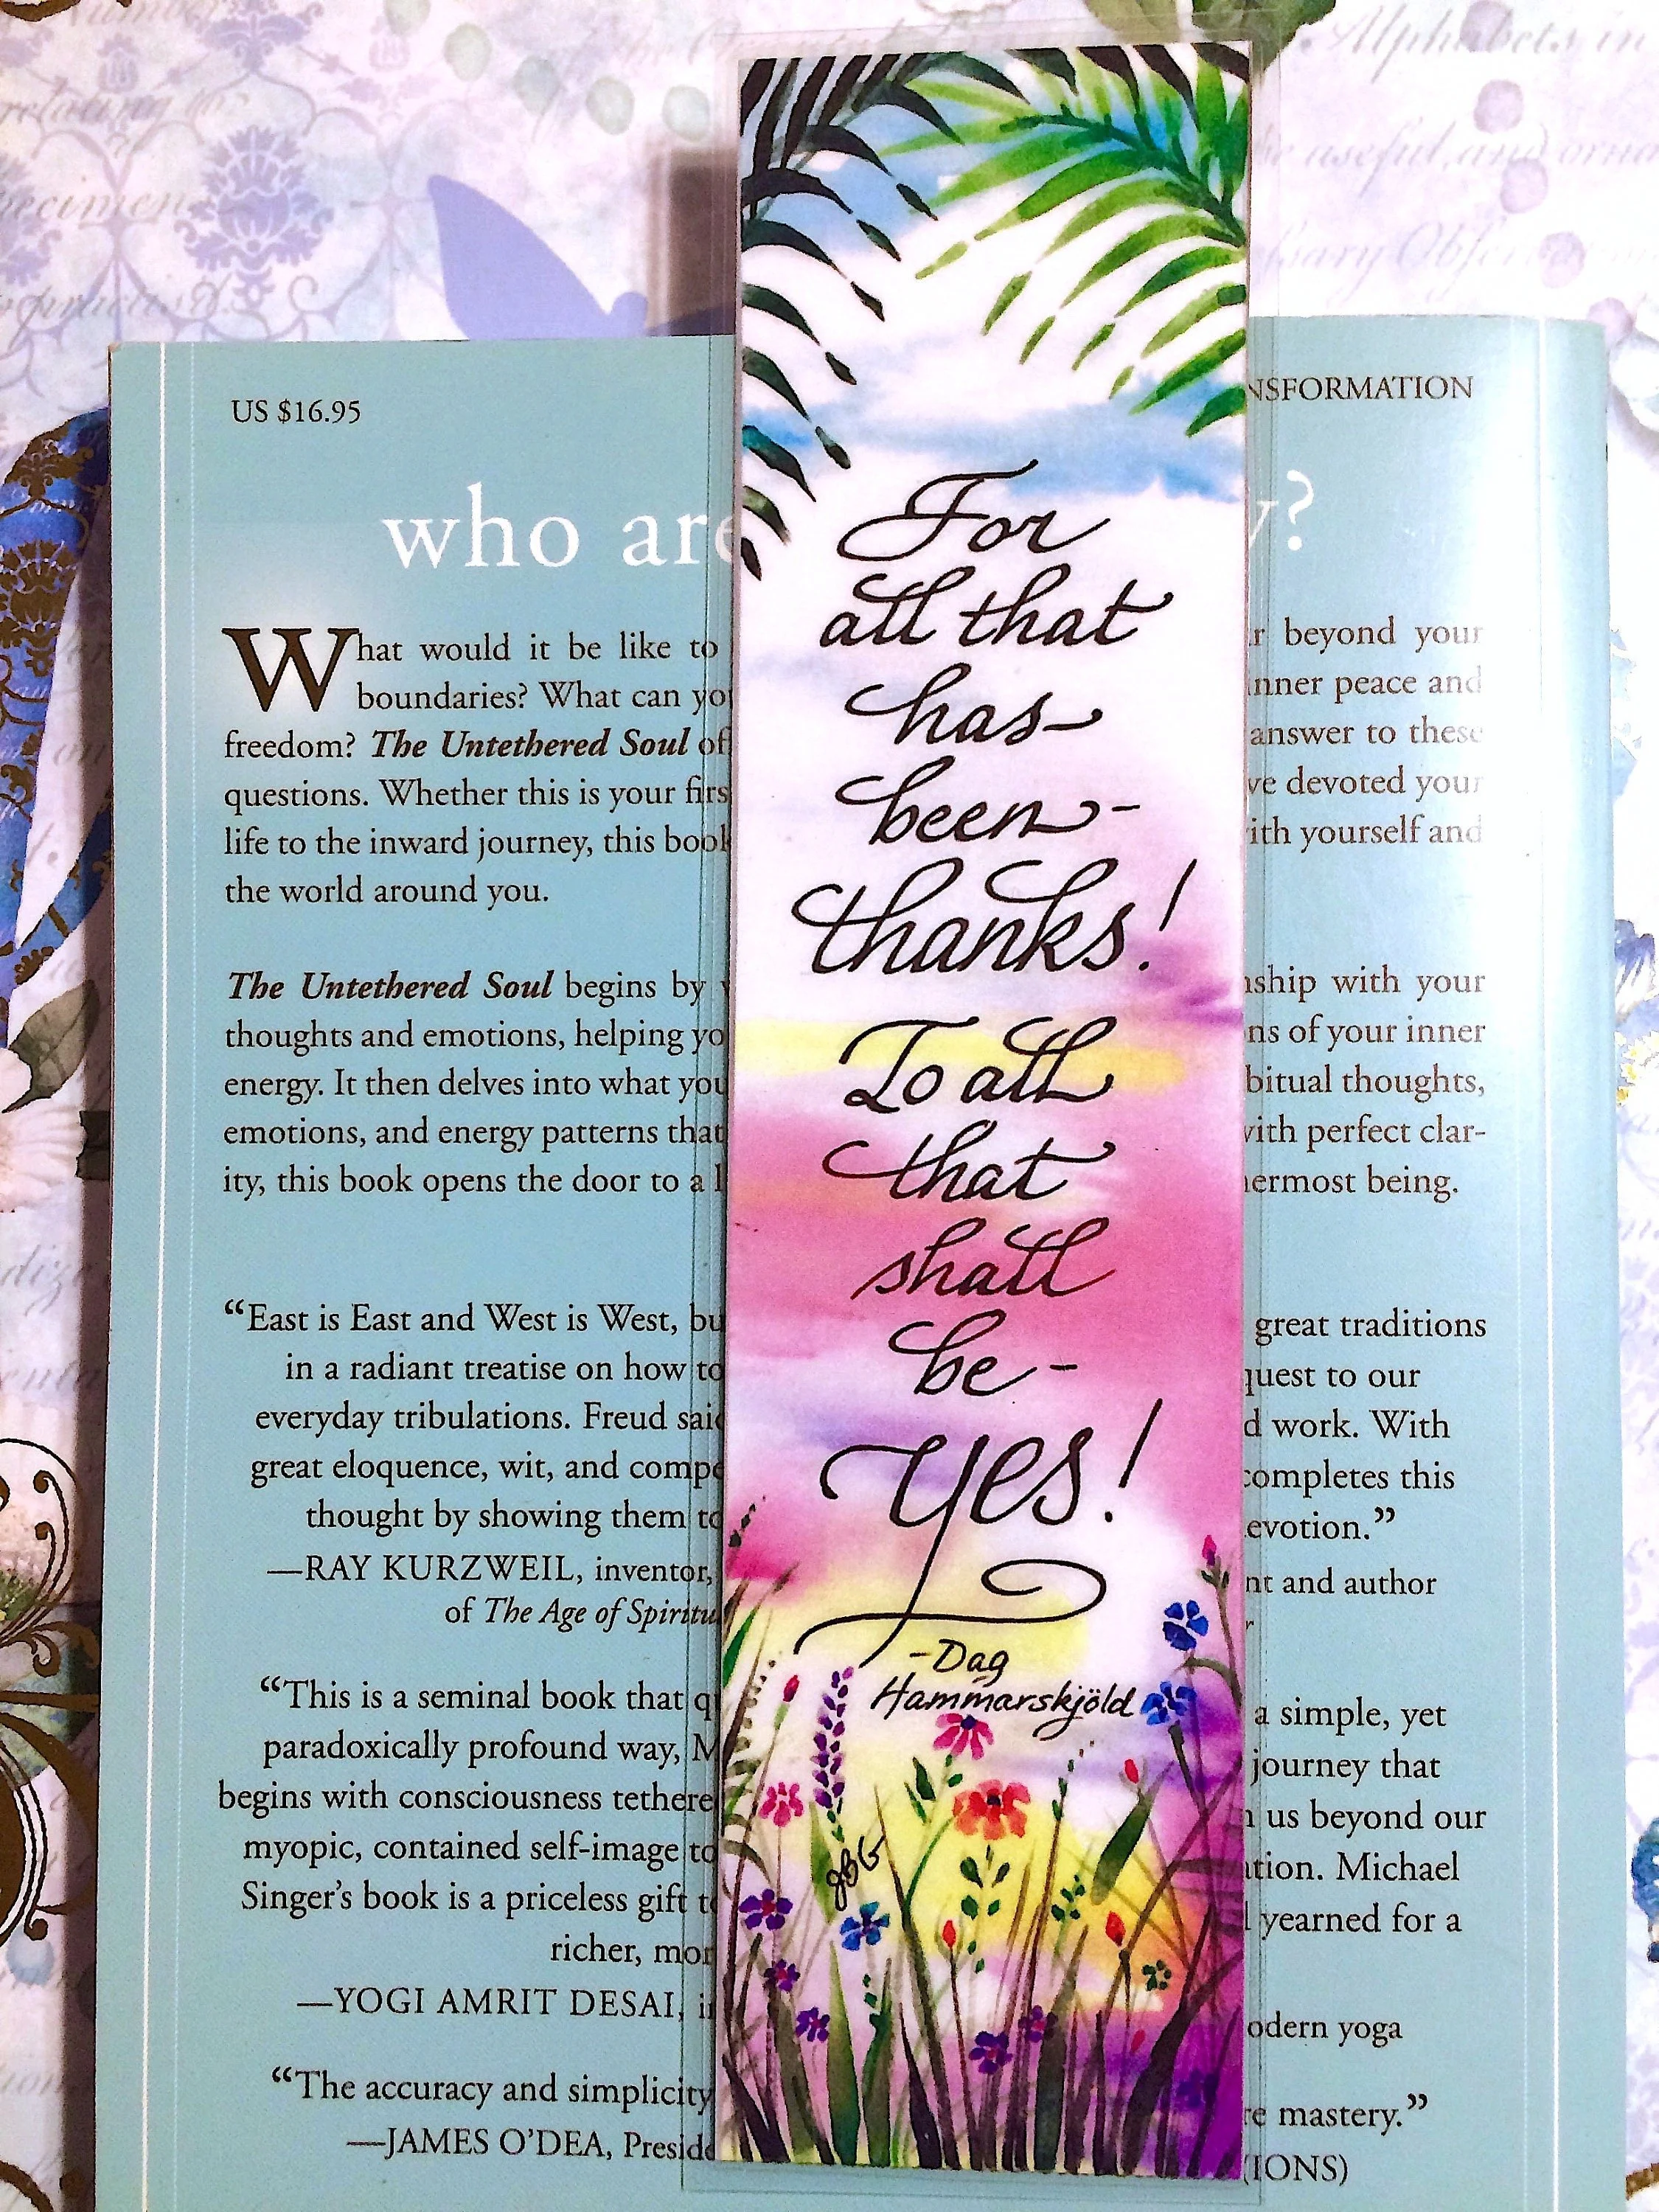 Alphabets, in
relating to
be useful, and orna
specimen
US $16.95
NSFORMATION
who are y?
For
all that
has-
been-
thanks!
To all
that
shall
be-
yes!
-Dag
Hammarskjöld
JBG
What would it be like to r beyond your
boundaries? What can yo inner peace and
freedom? The Untethered Soul of answer to these
questions. Whether this is your firs ve devoted your
life to the inward journey, this book ith yourself and
the world around you.
The Untethered Soul begins by nship with your
thoughts and emotions, helping yo ns of your inner
energy. It then delves into what you bitual thoughts,
emotions, and energy patterns that with perfect clar-
ity, this book opens the door to a l ermost being.
“East is East and West is West, bu great traditions
in a radiant treatise on how to quest to our
everyday tribulations. Freud said d work. With
great eloquence, wit, and compe completes this
thought by showing them to evotion.”
—RAY KURZWEIL, inventor, nt and author
of The Age of Spiritu r
“This is a seminal book that q a simple, yet
paradoxically profound way, M journey that
begins with consciousness tethere us beyond our
myopic, contained self-image to tion. Michael
Singer’s book is a priceless gift to yearned for a
richer, mor
—YOGI AMRIT DESAI, i odern yoga
“The accuracy and simplicity re mastery.”
—JAMES O’DEA, Preside IONS)